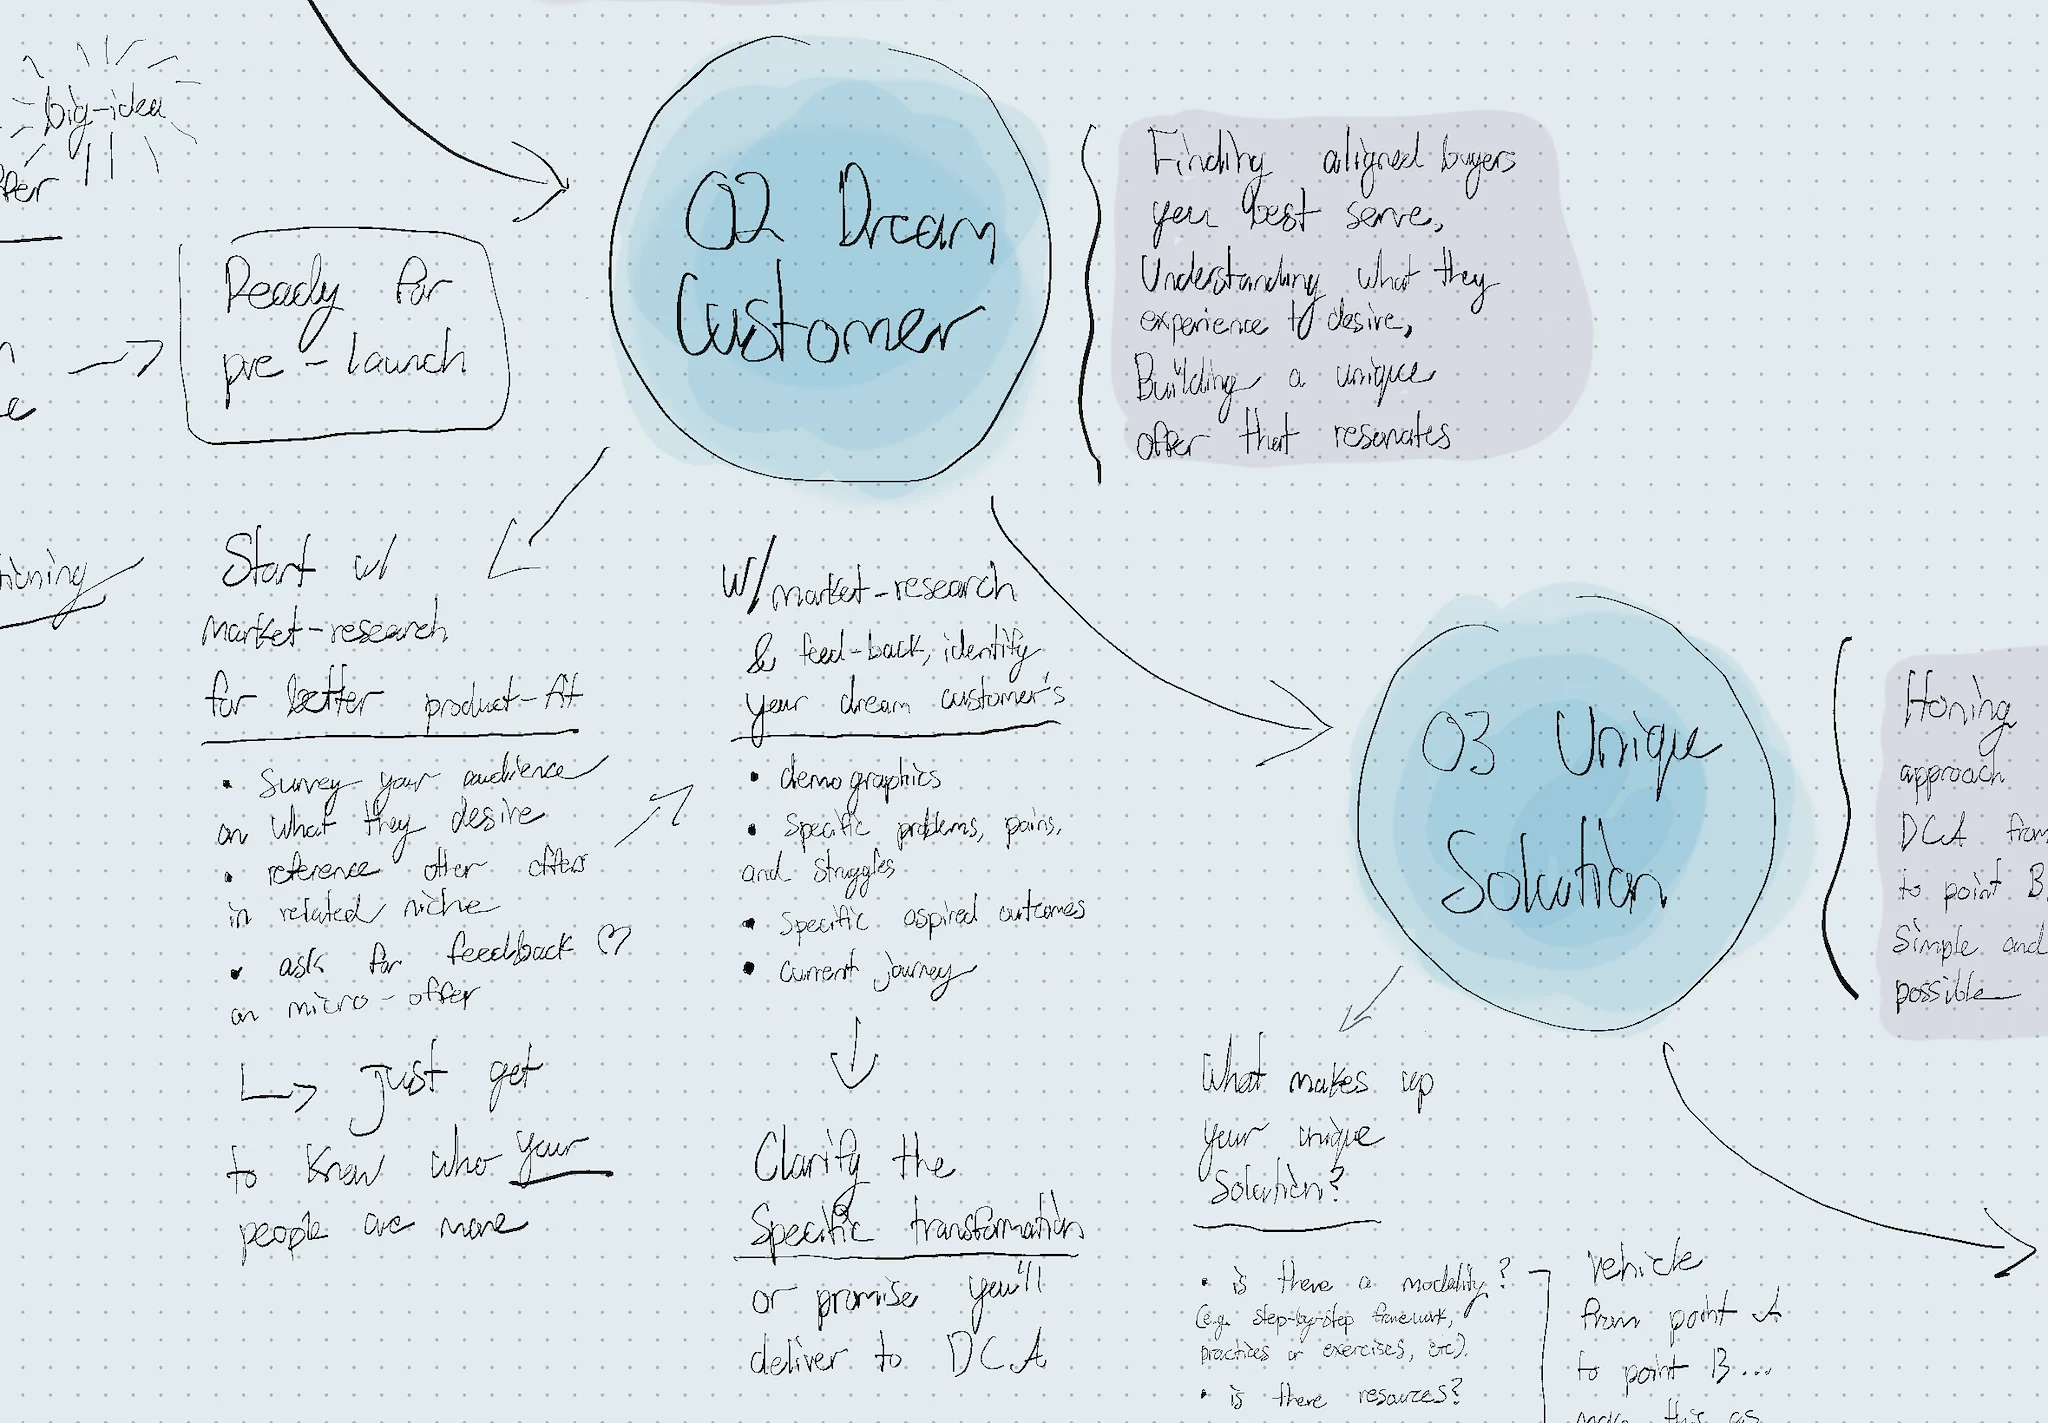 big-idea
Ready for
pre-launch
02 Dream
Customer
Finding aligned buyers
you best serve,
Understanding what they
experience to desire,
Building a unique
offer that resonates
Start w/
market-research
for better product-fit
• survey your audience
on what they desire
• reference other offers
in related niche
• ask for feedback ♡
on micro-offer
↳ just get
to know who your
people are more
w/market-research
& feed-back, identify
your dream customer's
• demographics
• specific problems, pains,
and struggles
• specific aspired outcomes
• current journey
Clarify the
specific transformation
or promise you'll
deliver to DCA
03 Unique
Solution
Honing
approach
DCA from
to point B,
simple and
possible
What makes up
your unique
solution?
• is there a modality?
(e.g. step-by-step framework,
practices or exercises, etc).
• is there resources?
vehicle
from point A
to point B...
make this as